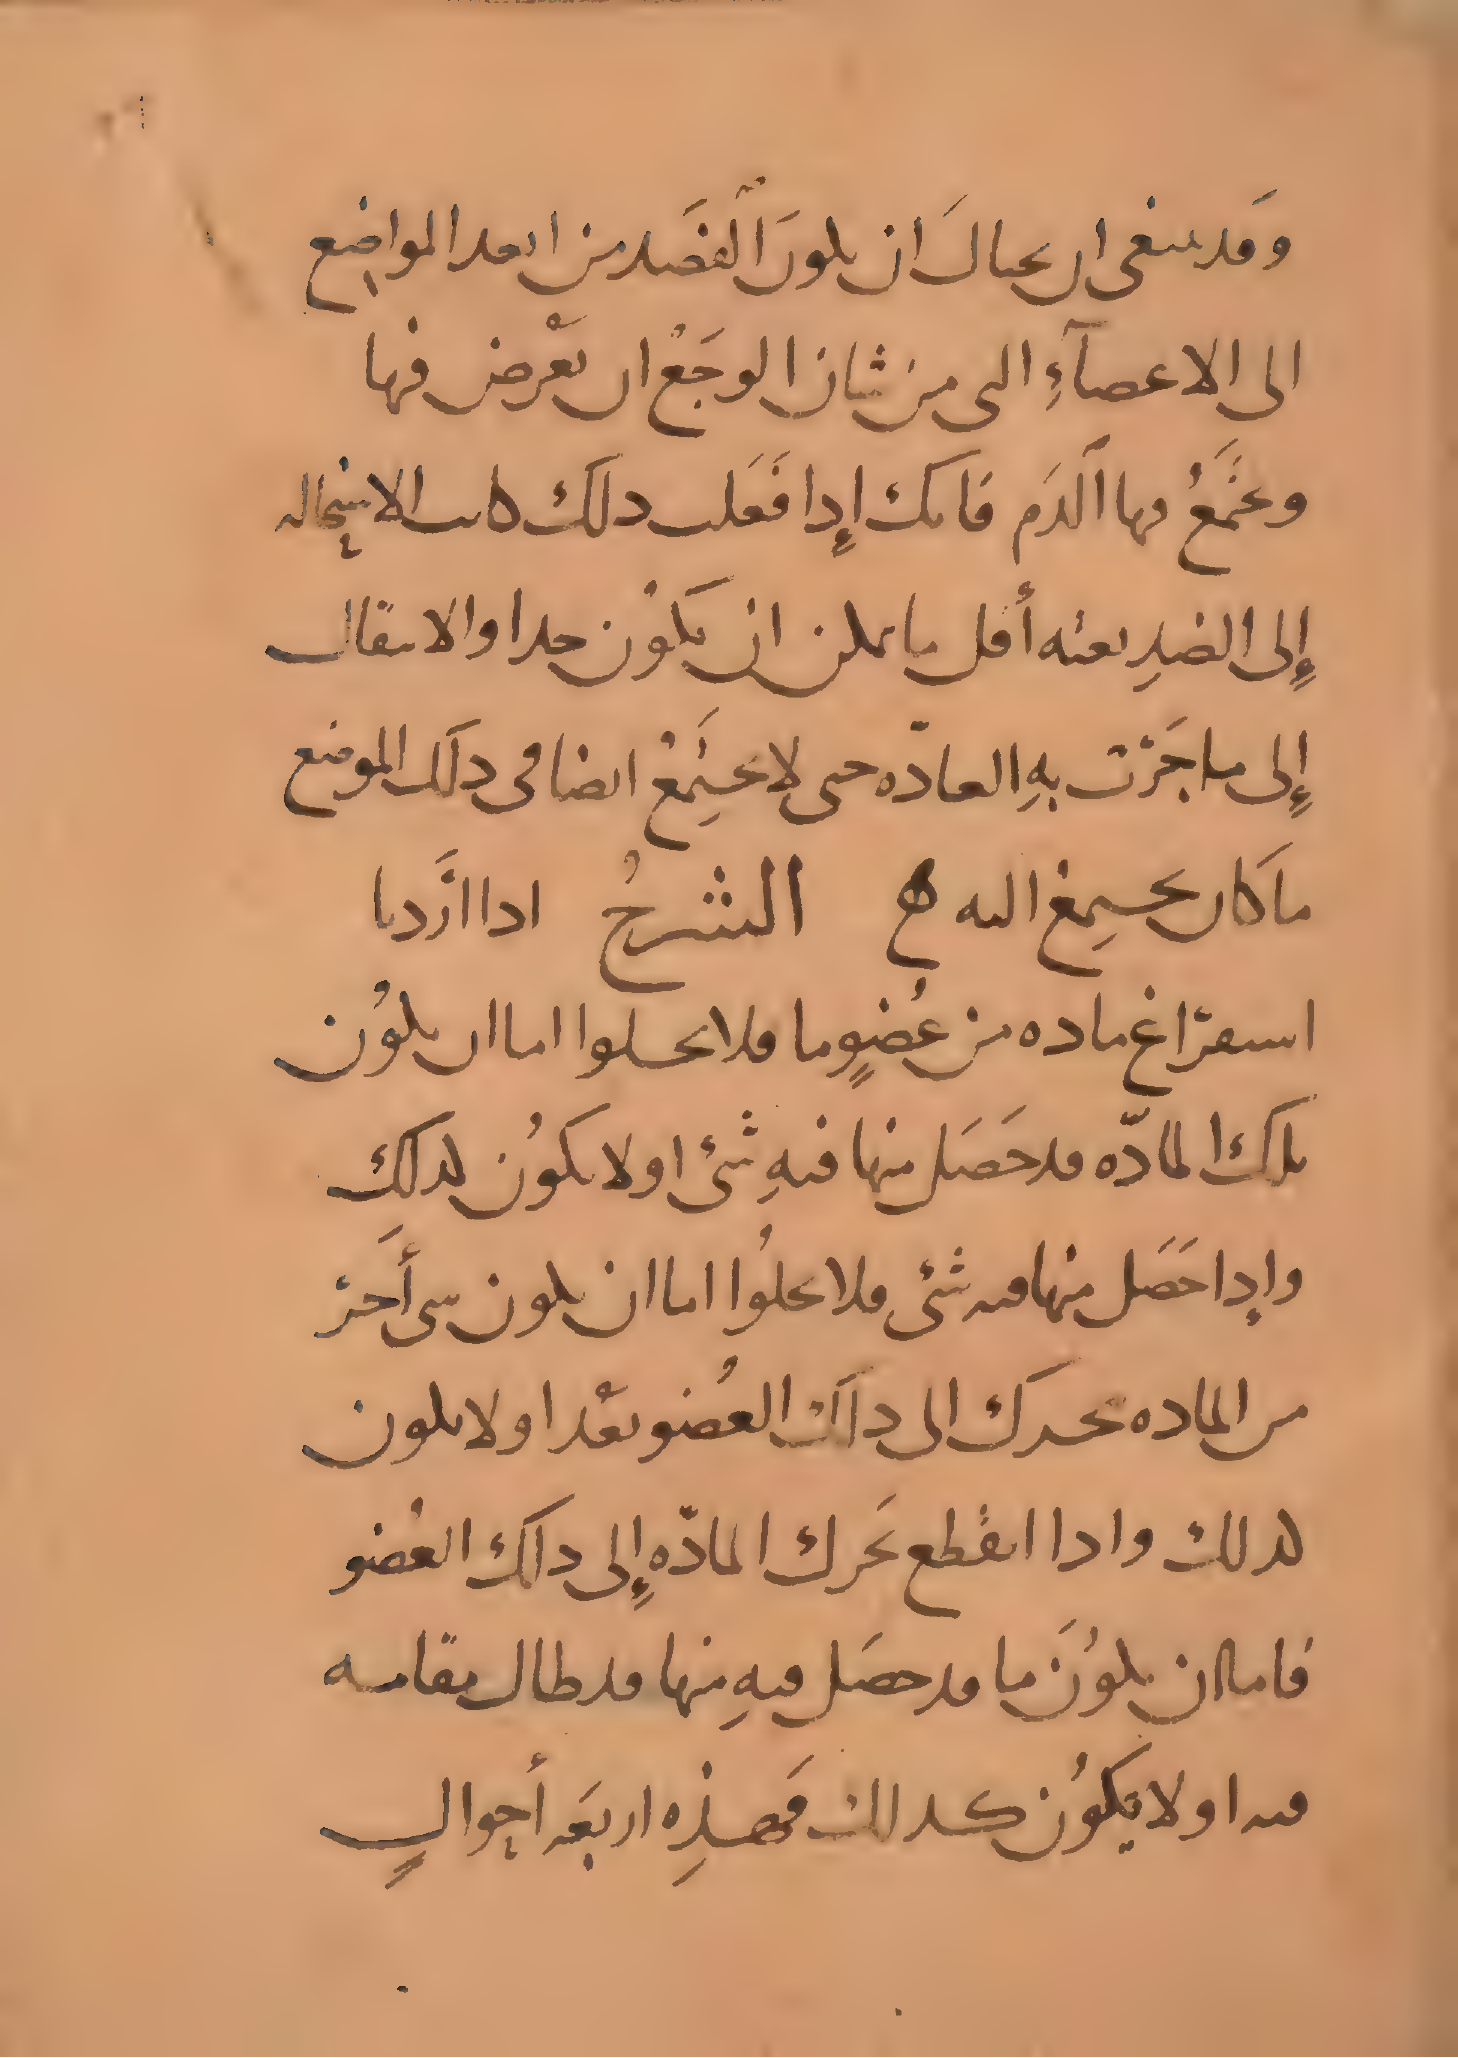 وقد ينبغي ان يحتال ان يكون الفصد من ابعد المواضع
الى الاعضآء التي من شان الوجع ان يعرض فيها
ويجتمع فيها الدم فانك إذا فعلت ذلك كانت الاستحاله
إلى الضد بغته أقل ما يمكن ان يكون جدا والانتقال
إلى ما جرت به العادّه حتى لا يجتمع ايضا في ذلك الموضع
ما كان يجتمع اليه الشرح اذا اردنا
استفراغ ماده من عضو ما فلا يخلوا اما ان يكون
تلك المادّه قد حصل منها فيه شئ او لا يكون كذلك
واذا حصل منها فيه شئ فلا يخلوا اما ان يكون شي أخر
من الماده يتحرك الى ذلك العضو بعد او لا يكون
كذلك واذا انقطع تحرك المادّه إلى ذلك العضو
فاما ان يكون ما قد حصل فيه منها قد طال مقامه
فيه او لا يكون كذلك فهذه اربعه أحوال